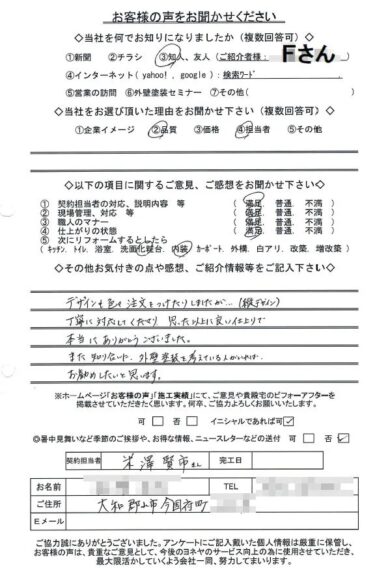 お客様の声をお聞かせください
◇当社を何でお知りになりましたか（複数回答可）◇
①新聞 ②チラシ ③知人、友人（ご紹介者様： Fさん
④インターネット( yahoo! , google )：検索ﾜｰﾄﾞ
⑤営業の訪問 ⑥外壁塗装セミナー ⑦その他( )
◇当社をお選び頂いた理由をお聞かせ下さい（複数回答可）◇
①企業イメージ ②品質 ③価格 ④担当者 ⑤その他
◇以下の項目に関するご意見、ご感想をお聞かせ下さい◇
① 契約担当者の対応、説明内容 等 （ 満足. 普通. 不満 ）
② 現場管理、対応 等 （ 満足. 普通. 不満 ）
③ 職人のマナー （ 満足. 普通. 不満 ）
④ 仕上がりの状態 （ 満足. 普通. 不満 ）
⑤ 次にリフォームするとしたら
（ｷｯﾁﾝ. ﾄｲﾚ. 浴室. 洗面化粧台. 内装. ｶｰﾎﾟｰﾄ. 外構. 白アリ. 改築. 増改築）
◇その他お気付きの点や感想、ご紹介情報等をご記入下さい◇
デザインも色も注文をつけたりしましたが…(縦デザイン)
丁寧に対応してくださり 思った以上に良い仕上りで
本当にありがとうございました。
また知り合いに、外壁塗装を考えている人がいれば、
お勧めしたいと思います。
※ホームページ「お客様の声」「施工実績」にて、ご意見や貴殿宅のビフォーアフターを
掲載させていただきたく思います。何卒、ご協力よろしくお願いいたします。
可 □ 否 □ イニシャルであれば可 ☑
◎暑中見舞いなど季節のご挨拶や、お得な情報、ニュースレターなどの送付 可 □ 否 ☑
契約担当者 米澤 賢市さん 完工日
お名前 TEL
ご住所 大和郡山市今国府町
Eメール
ご協力誠にありがとうございました。アンケートにご記入戴いた個人情報は厳重に保管し、
お客様の声は、貴重なご意見として、今後のヨネヤのサービス向上の為に使用させていただき、
最大限活かしていくよう会社一同、努力してまいります。